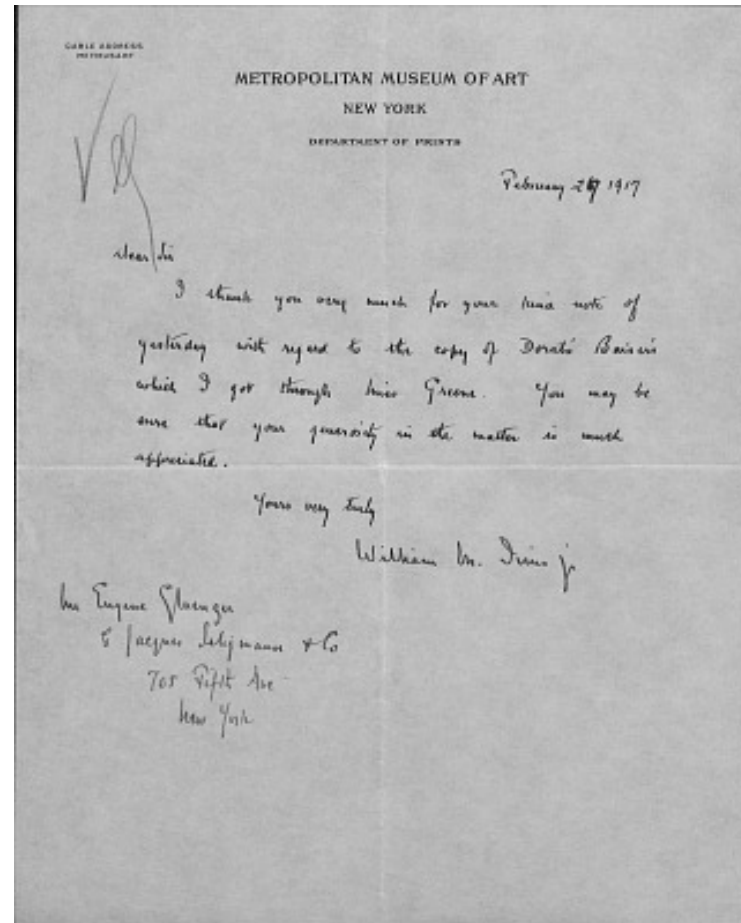 CABLE ADDRESS
METMUSART
METROPOLITAN MUSEUM OF ART
NEW YORK
DEPARTMENT OF PRINTS
February 1917
Dear Sir
I thank you very much for your kind note of
yesterday with regard to the copy of Dorat's Baisers
which I got through Miss Greene. You may be
sure that your generosity in the matter is much
appreciated.
Yours very truly
William M. Ivins jr
Mr Eugene Glaenzer
c/o Jacques Seligmann & Co
705 Fifth Ave
New York